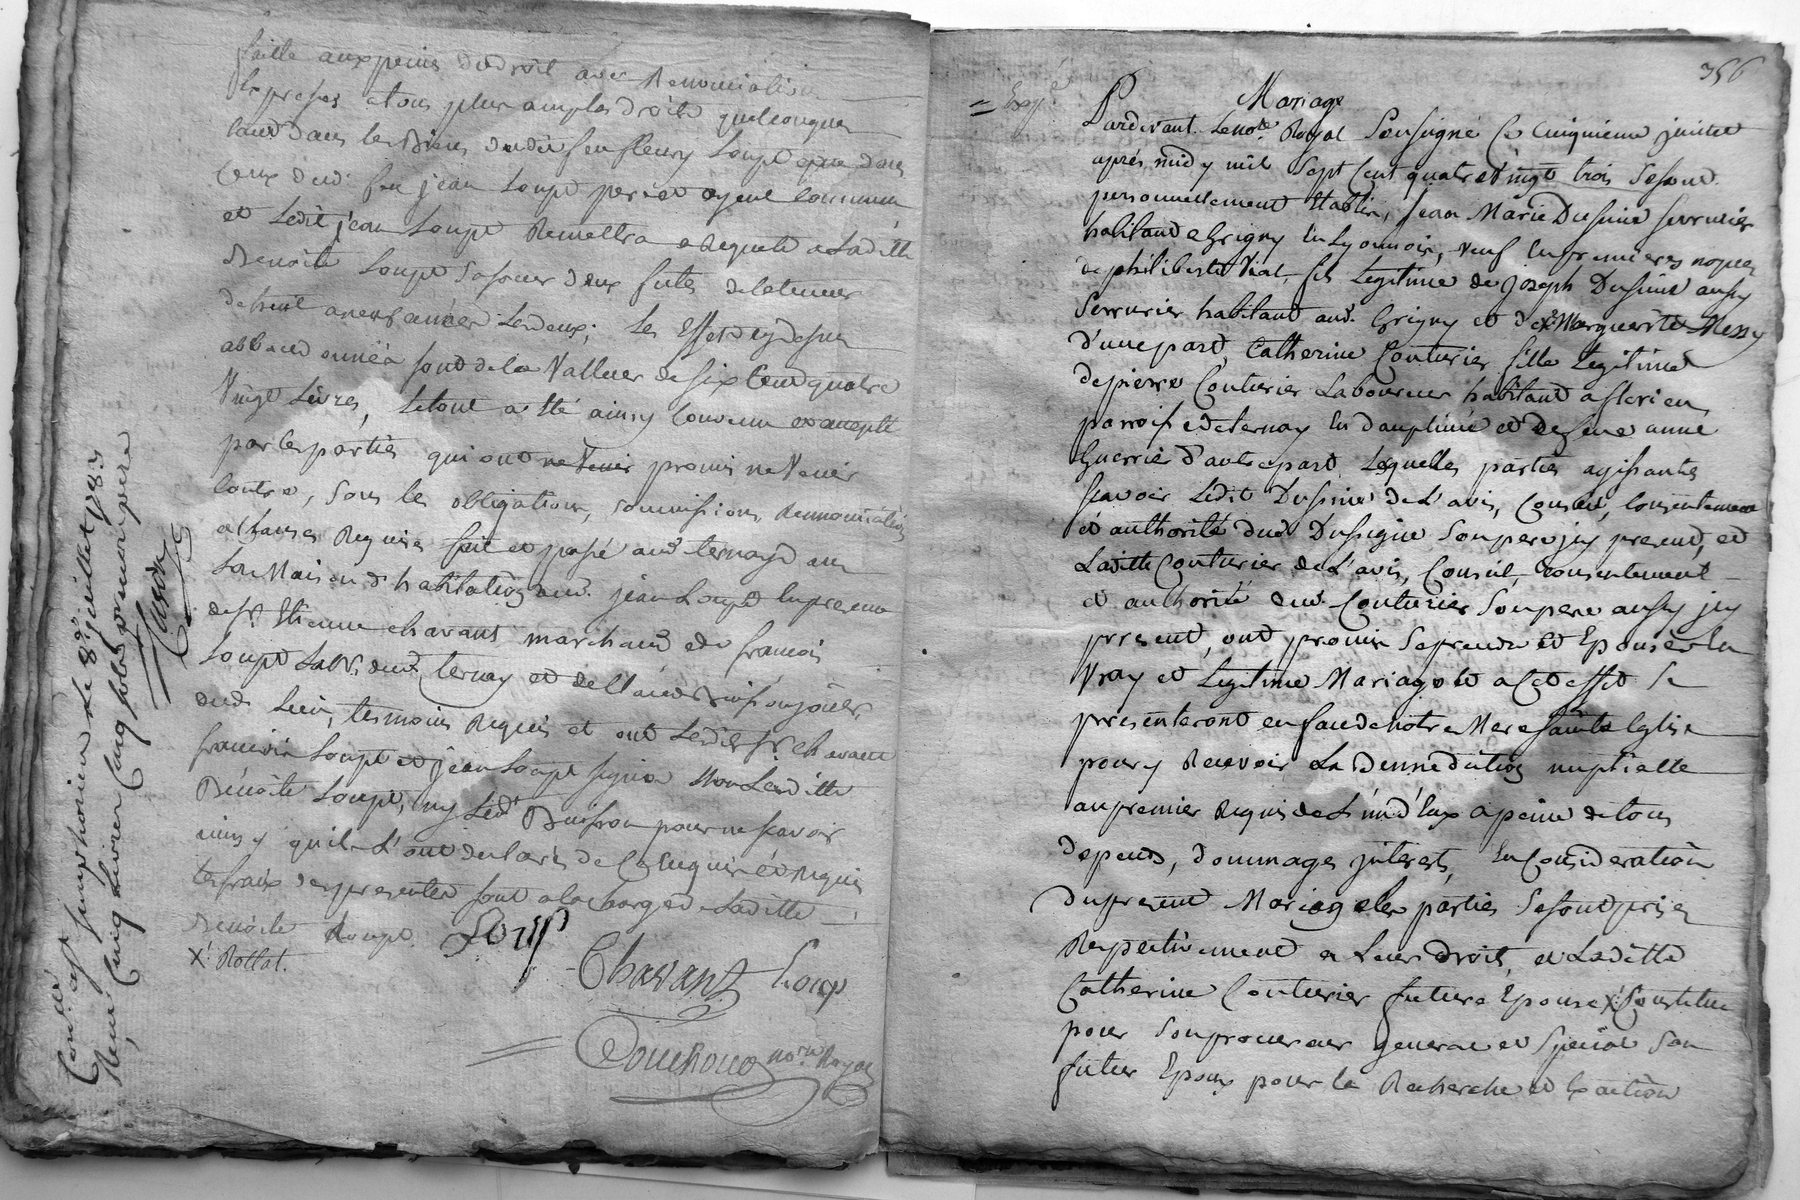 faitte aux peines de droit avec Renonciation
Expresses a tous plus amples droits quelconques
tant dans les Biens dudit feu fleury Loup que dans
Ceux dud. feu jean Loup pere et ayeul commun
et Ledit jean Loup Remettra a Requete a Laditte
Benoite Loup Sa soeur deux futes de la teneur
de huit anées Les deux; Les Effets cy dessus
sont de la Valleur de six Cent quatre
Vingt Livres, Le tout a été ainsy Convenu et accepté
par les parties qui ont promis ne Venir
Contre, sous les obligations, soumissions, Renonciations
et Clauses Requises fait et passé aud. ternay en
La Maison d'habitation dud. jean Loup En presence
de Sr. Etienne Chavant marchand et de francois
Loup Lab. dud. ternay et de
dud. Lieu, temoins Requis et ont Lesdits Sr. Chavant
francois Loup et jean Loup signé Non Laditte
Benoite Loup, ny Led. Buisson pour ne scavoir
ainsy qu'ils L'ont declaré de Ce Enquis et Requis
Les fraix des presentes sont a la charge de Laditte
Benoite Loup.
X. Rollat.
Loup
Chavant Loup
Couchoud no.re Royal
Condrieu
Controllé a st simphorien Le 8e. juillet 1783
Reçu Cinq Livres Cinq sols pour un pere
356
= Expé.
Mariage
Pardevant Le no.re Royal Soussigné Ce Cinquieme juillet
après midy mil Sept Cent quatre Vingt trois Se sont
personnellement Etablis, Jean Marie Dussine serrurier
habitant a Grigny En Lyonnois, Veuf En premieres nopces
de philiberte Vial, fils Legitime de Joseph Dussine aussy
Serrurier habitant aud. Grigny et de Marguerite Messy
D'une part, Catherine Couturier fille Legitime
de pierre Couturier Laboureur habitant a flevieu
parroisse de ternay En dauphiné et de feue anne
Guerrie D'autre part, Lesquelles parties agissantes
scavoir Ledit Dussine de L'avis, Conseil, consentement
et authorité dud. Dussigne Son pere jcy present, et
Laditte Couturier de L'avis, Conseil, consentement
et authorité dud. Couturier Son pere aussy jcy
present, ont promis Se prendre et Epouser En
Vray et Legitime Mariage et a Cet effet Se
presenteront en face de notre Mere sainte Eglise
pour y Recevoir La Bennediction nuptialle
au premier Requis de L'un d'Eux a peine de tous
depens, dommages jnterests, En Consideration
du present Mariage les parties Se sont prises
Respectivement a Leurs droits, et Laditte
Catherine Couturier future Epouse X Constitue
pour Son procureur general et Special Son
futur Epoux pour la Recherche et Exaction